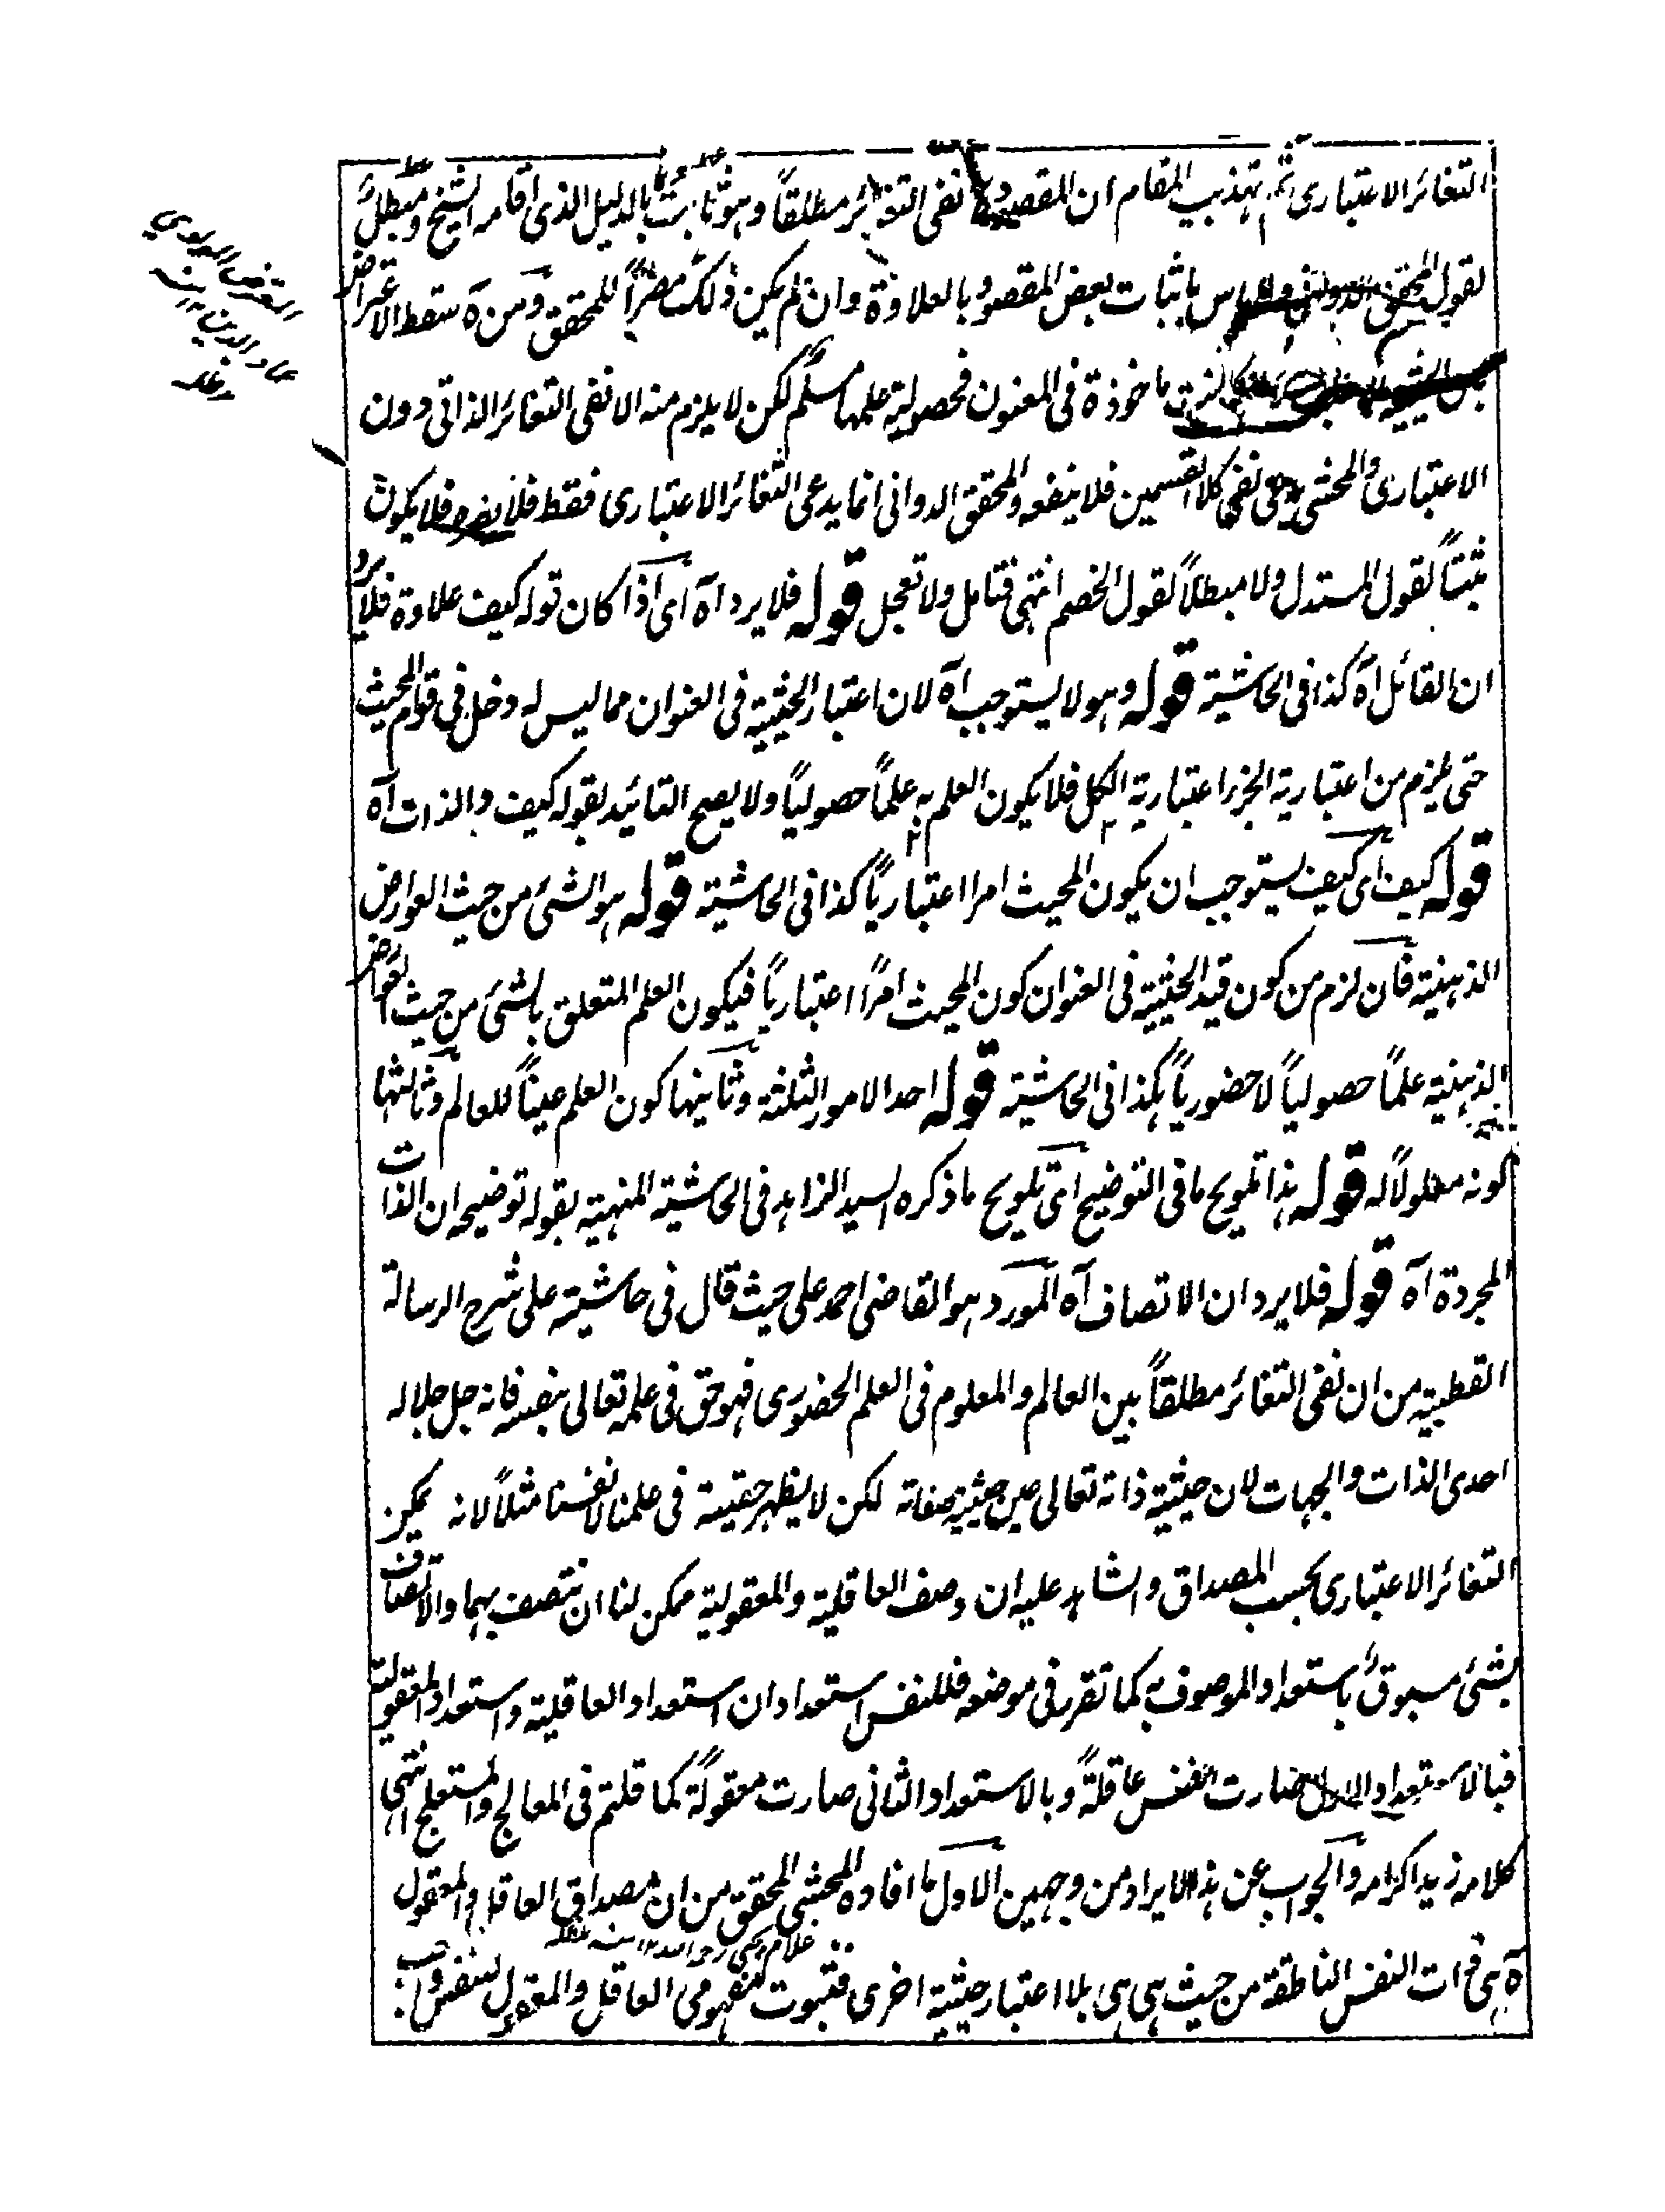 التغائر الاعتبارى ثم تهذيب المقام ان المقصود نفى التغائر مطلقاً وهو ثابت بالدليل الذى اقامه الشيخ ومبطل
لقول المحقق الدوانى ولا باس باثبات بعض المقصود بالعلاوة وان لم يكن ذلك مضراً للمحقق ومن آه سقط الاعتراض
ماخوذة فى المعنون فحصولية علمها مسلم لكن لا يلزم منه الا نفى التغائر الذاتى دون
الاعتبارى والمحشى يدعى نفى كلا القسمين فلا ينفعه والمحقق الدوانى انما يدعى التغائر الاعتبارى فقط فلا يضره فلا يكون
مثبتاً لقول المستدل ولا مبطلاً لقول الخصم انتهى فتامل ولا تعجل قوله فلا يرد آه اى اذا كان قوله كيف علاوة فلا يرد
ان القائل آه كذا فى الحاشية قوله وهو لا يستوجب آه لان اعتبار الحيثية فى العنوان مما ليس له دخل فى قوام المحيث
حتى يلزم من اعتبارية الجزء اعتبارية الكل فلا يكون العلم به علماً حصولياً ولا يصح التائيد بقوله كيف والذات آه
قوله كيف اى كيف يستوجب ان يكون المحيث امرا اعتبارياً كذا فى الحاشية قوله هو الشئ من حيث العوارض
الذهنية فان لزم من كون قيد الحيثية فى العنوان كون المحيث امراً اعتبارياً فيكون العلم المتعلق بالشئ من حيث العوارض
الذهنية علماً حصولياً لا حضورياً هكذا فى الحاشية قوله احد الامور الثلثة وثانيها كون العلم عيناً للعالم وثالثها
كونه معلولاً له قوله هذا تلويح ما فى التوضيح اى تلويح ما ذكره السيد الزاهد فى الحاشية المنهية بقوله توضيحه ان الذات
المجردة آه قوله فلا يرد ان الاتصاف آه المورد هو القاضى احمد على حيث قال فى حاشيته على شرح الرسالة
القطبية من ان نفى التغائر مطلقاً بين العالم والمعلوم فى العلم الحضورى فهو حق فى علمه تعالى بنفسه فانه جل جلاله
احدى الذات والجهات لان حيثية ذاته تعالى عين حيثية صفاته لكن لا يظهر حقيته فى علمنا لانفسنا مثلاً لانه يمكن
التغائر الاعتبارى بحسب المصداق والشاهد عليه ان وصف العاقلية والمعقولية ممكن لنا ان نتصف بهما والاتصاف
بشئ مسبوق باستعداد الموصوف به كما تقرر فى موضعه فللنفس استعدادان استعداد العاقلية واستعداد المعقولية
فبالاستعداد الاول صارت النفس عاقلةً وبالاستعداد الثانى صارت معقولةً كما قلتم فى المعالج والمستعلج انتهى
كلامه زيد اكرامه والجواب عن هذا الايراد من وجهين الاول ما افاده المحشى المحقق من ان مصداق العاقل والمعقول
آه هى ذات النفس الناطقة من حيث هى هى بلا اعتبار حيثية اخرى فثبوت مفهومى العاقل والمعقول للنفس